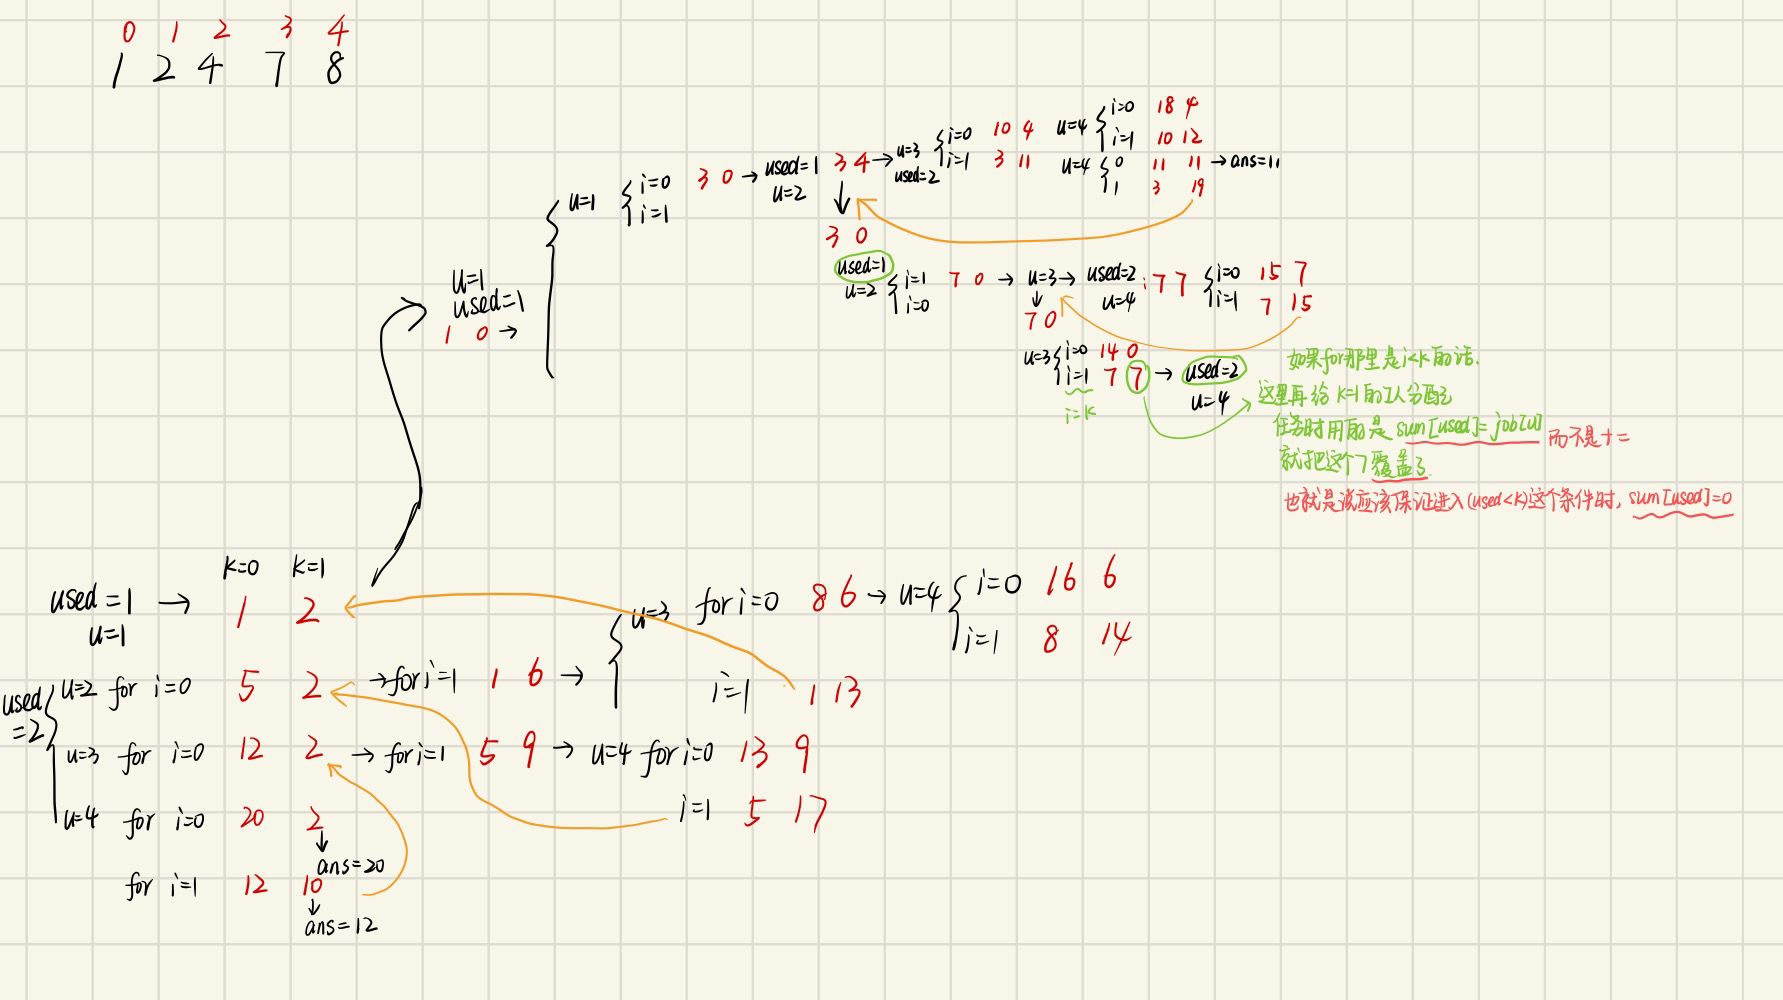 0 1 2 3 4
1 2 4 7 8
u=1
used=1
1 0 →
u=1
i=0 3 0 → used=1 3 4 →
i=1
u=2
u=3
used=2
i=0 10 4
i=1 3 11
u=4
i=0 18 4
i=1 10 12
u=4
0 11 11 → ans=11
1 3 19
3 0
used=1
u=2
i=1 7 0 → u=3 → used=2 : 7 7
i=0
u=4
i=0 15 7
i=1 7 15
7 0
u=3
i=0 14 0
i=1 7 7 → used=2
u=4
i=k
如果for那里是i<k的话.
这里再给k=1的工人分配
任务时用的是 sum[used]=job[u] 而不是+=
就把这个7覆盖了.
也就是说应该保证进入(used<k)这个条件时, sum[used]=0
k=0 k=1
used=1 → 1 2
u=1
used
=2
u=2 for i=0 5 2 → for i=1 1 6 →
u=3 for i=0 8 6 → u=4
i=0 16 6
i=1 8 14
i=1 1 13
u=3 for i=0 12 2 → for i=1 5 9 → u=4 for i=0 13 9
i=1 5 17
u=4 for i=0 20 2
ans=20
for i=1 12 10
ans=12